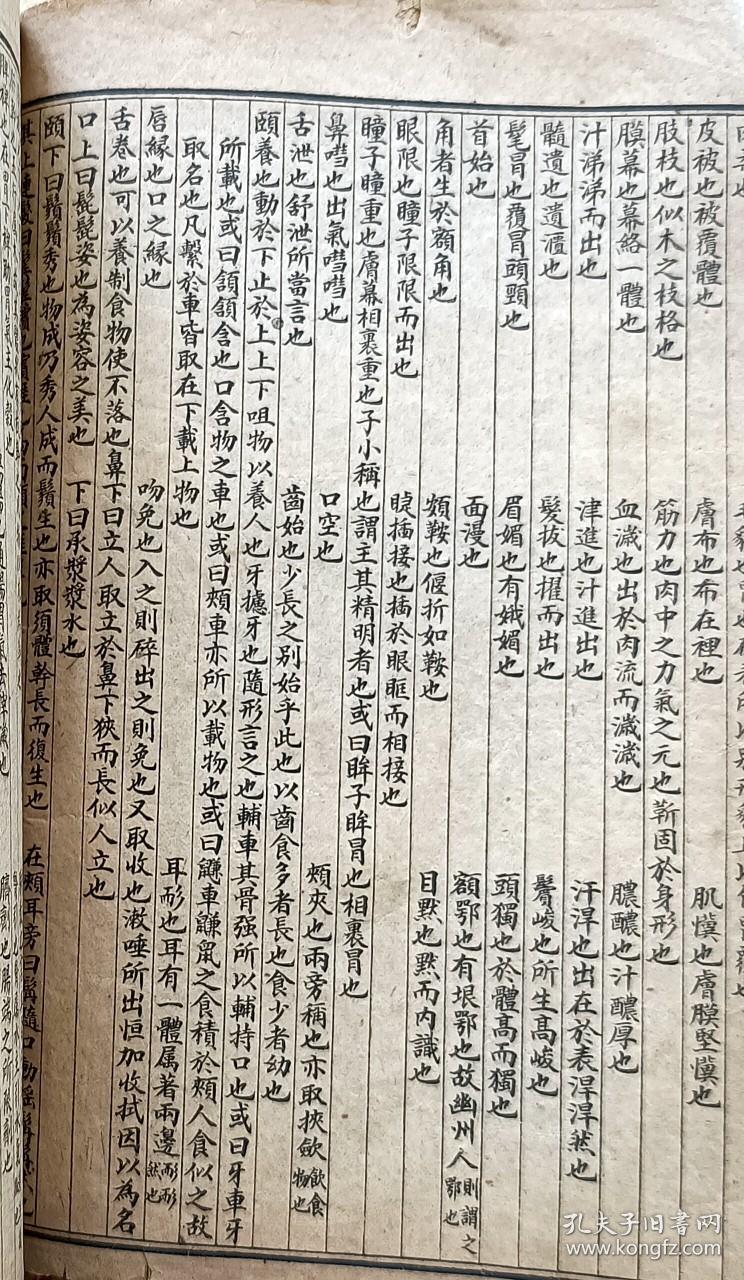 皮被也被覆體也 膚布也布在裡也 肌慔也膚膜堅慔也
肢枝也似木之枝格也 筋力也肉中之力氣之元也靳固於身形也
膜幕也幕絡一體也 血濊也出於肉流而濊濊也 膿醲也汁醲厚也
汁涕涕而出也 津進也汁進出也 汗涆也出在於表涆涆然也
髓遺也遺㵒也 髮拔也擢而出也 鬢峻也所生高峻也
髦冒也覆冒頭頸也 眉媚也有娥媚也 頭獨也於體高而獨也
首始也 面漫也 額鄂也有垠鄂也故幽州人則謂之鄂也
角者生於額角也 頞鞍也偃折如鞍也 目默也默而内識也
眼限也瞳子限限而出也 睫插接也插於眼眶而相接也
瞳子瞳重也膚幕相裹重也子小稱也謂主其精明者也或曰眸子眸冒也相裹冒也
鼻嘒也出氣嘒嘒也 口空也 頰夾也兩旁稱也亦取挾歛飲食物也
舌泄也舒泄所當言也 齒始也少長之别始乎此也以齒食多者長也食少者幼也
頤養也動於下止於上上下咀物以養人也牙樝牙也隨形言之也輔車其骨强所以輔持口也或曰牙車牙
所載也或曰頷頷含也口含物之車也或曰頰車亦所以載物也或曰鼸車鼸鼠之食積於頰人食似之故
取名也凡繫於車皆取在下載上物也 耳耏也耳有一體属著兩邊耏耏然也
唇緣也口之緣也 吻免也入之則碎出之則免也又取收也漱唾所出恒加收拭因以為名
舌卷也可以養制食物使不落也鼻下曰立人取立於鼻下狹而長似人立也
口上曰髭髭姿也為姿容之美也 下曰承漿漿水也
頤下曰鬚鬚秀也物成乃秀人成而鬚生也亦取須體幹長而復生也 在頰耳旁曰髯隨口動摇髯髯然也
孔夫子旧书网
www.kongfz.com